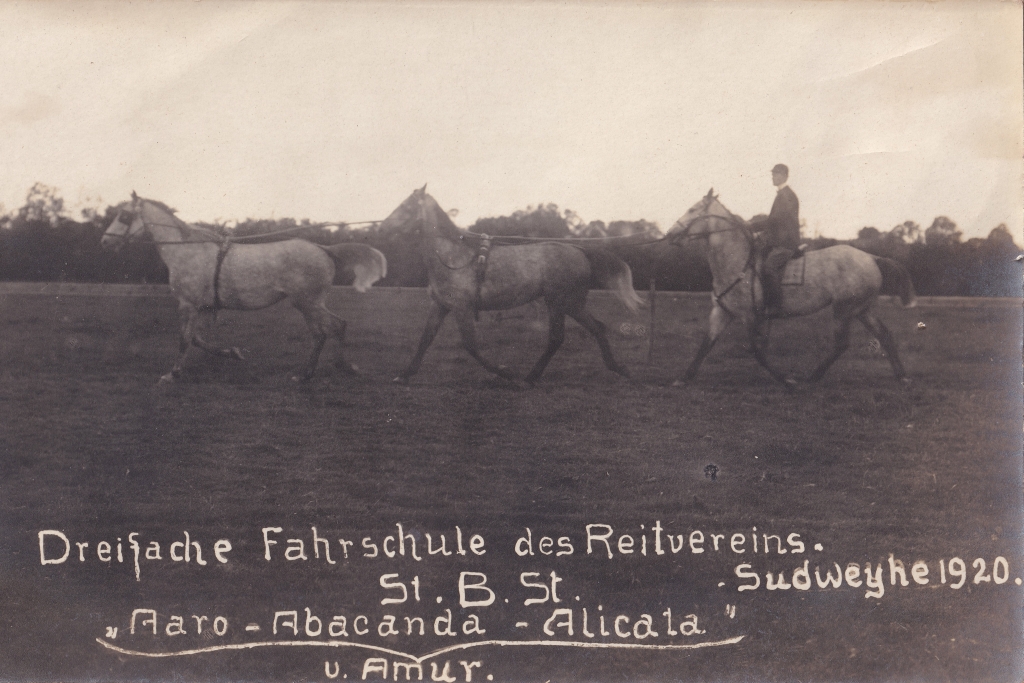 Dreifache Fahrschule des Reitvereins.
St. B. St. Sudweyhe 1920.
„Aaro - Abacanda - Alicata"
u. Amur.